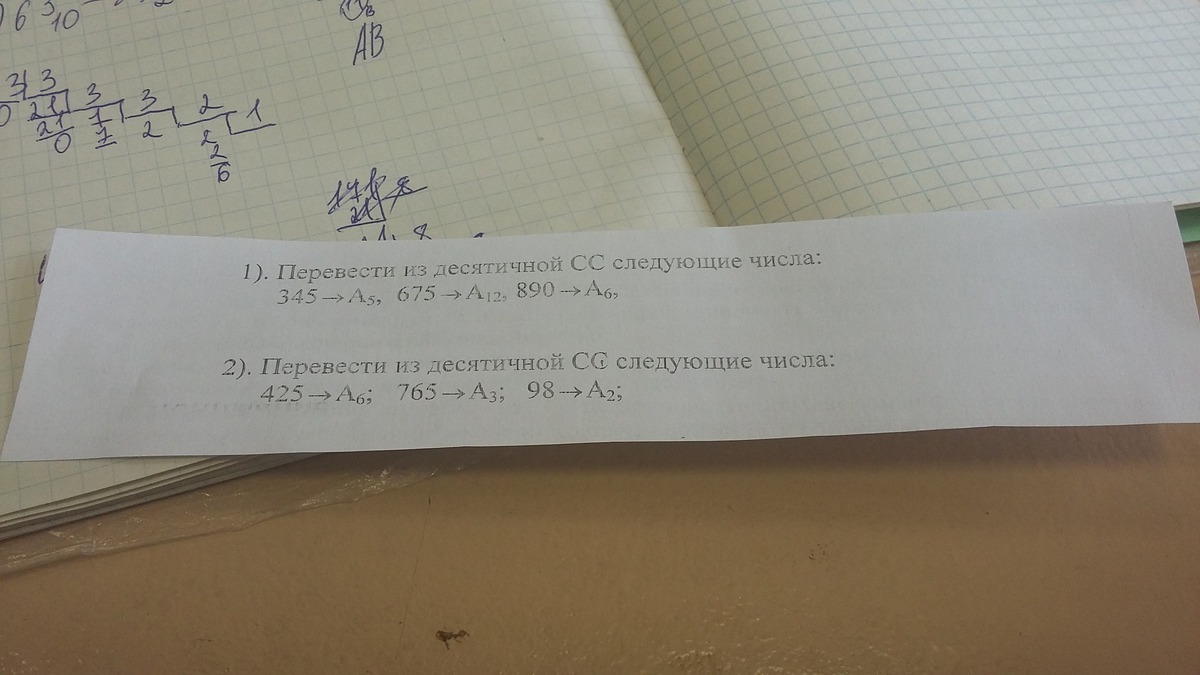 6 3 10
AB
3 3 3 3 2 1
21 1 2 2
21 7 2
0 6
1). Перевести из десятичной СС следующие числа:
345→A₅, 675→A₁₂, 890→A₆,
2). Перевести из десятичной СС следующие числа:
425→A₆; 765→A₃; 98→A₂;